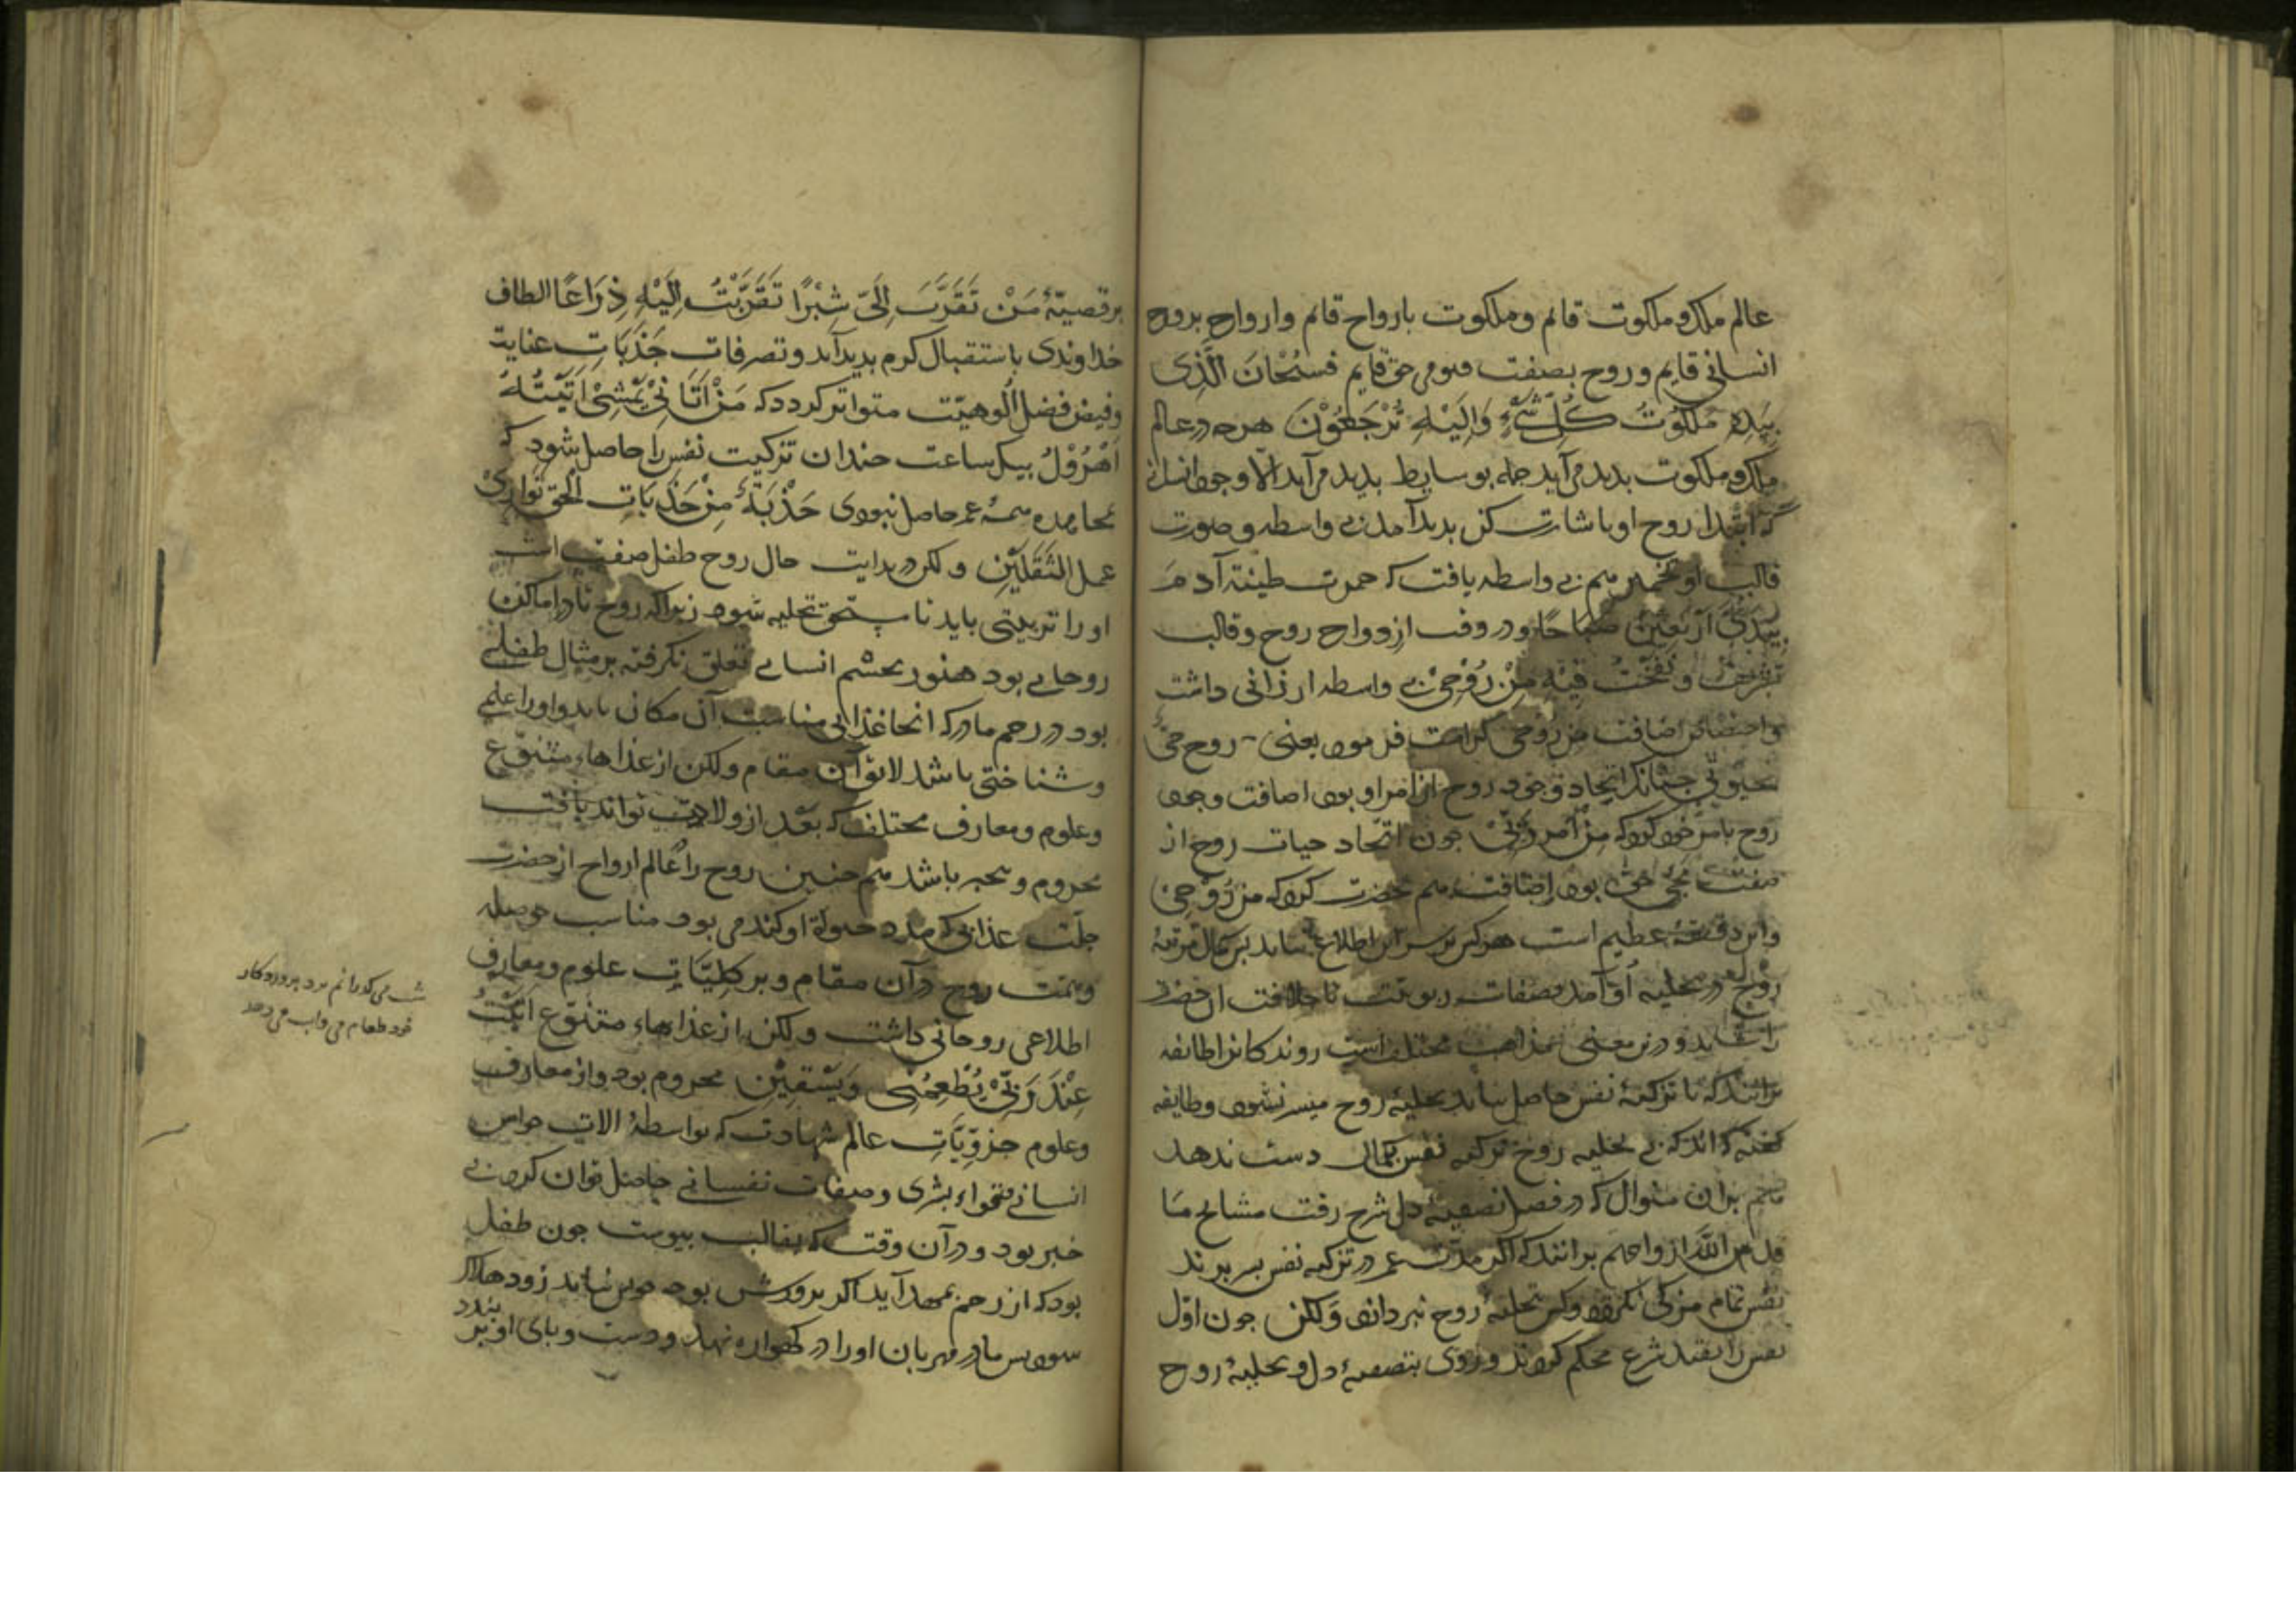 عالم ملک و ملکوت قائم و ملکوت بارواح قائم و ارواح بروح
انسانی قایم و روح بصفت قیومی حق قایم فَسُبْحَانَ الَّذِی
بِیَدِهِ مَلَکُوتُ کُلِّ شَیْءٍ وَاِلَیْهِ تُرْجَعُوْنَ هرجه در عالم
ملک و ملکوت بدید می آید جمله بوسایط بدید می آید الا وجود انسان
که ابتدا روح او باشارت کن بدید آمد بی واسطه و صورت
قالب او تخمیر هم بی واسطه یافت که خمرت طینة آدم
بِیَدَیَّ اَرْبَعِیْنَ صَبَاحًا و در وقت ازدواج روح و قالب
تشریف وَنَفَخْتُ فِیْهِ مِنْ رُوْحِیْ بی واسطه ارزانی داشت
و اختصاص اضافت من رُوحی کرامت فرمود یعنی روح حیّ
بحیوتی جنانک ایجاد وجود روح از امر او بود اضافت وجود
روح بامر خود کرد که مِنْ اَمْرِ رَبِّیْ جون اتّحاد حیات روح از
صفت محیی حق بود اِضافت هم بحضرت کرد که من رُوْحِیْ
و این دقیقهٔ عظیم است هرکس بر سر این اطلاع نیابد بس کمال مرتبهٔ
روح در تحلیه اُو آمد بصفات ربوبیت تا خلافت آن حضرت
را شاید و درین معنی مذاهب مختلف است روندکانرا طایفه
برانند که تا تزکیهٔ نفس حاصل نیاید تحلیهٔ روح میسر نشود و طایفه
کفته اند که بی تحلیه روح تزکیه نفس بکمال دست ندهد
هم بران منوال که در فصل تصفیهٔ دل شرح رفت مشایخ ما
قدس الله ارواحهم برانند که اکر مدّت عمر در تزکیه نفس بسر برند
نفس تمام مزکی نکردد و کس بتحلیهٔ روح نبردازد وَلکن جون اوّل
نفس را بقید شرع محکم کردند و روی بتصفیهٔ دل و تحلیهٔ روح
بر قضیّهٔ مَنْ تَقَرَّبَ اِلَیَّ شِبْرًا تَقَرَّبْتُ اِلَیْهِ ذِرَاعًا الطاف
خداوندی باستقبال کرم بدید آید و تصرفات جَذَبَاتِ عنایت
و فیض فضل اُلوهیّت متواتر کردد که مَنْ اَتَانِیْ یَمْشِیْ اَتَیْتُهُ
اُهَرْوِلُ بیک ساعت جندان تزکیت نفس را حاصل شود که
بمجاهده همه عمر حاصل نبودی جَذْبَةٌ مِنْ جَذَبَاتِ الْحَقِّ تُوَازِیْ
عمل الثَّقَلَیْنِ و لکن در بدایت حال روح طفل صفت است
او را تربیتی باید تا مستحق تحلیه شود زیرا که روح تا در اماکن
روحانی بود هنوز بجسم انسانی تعلق نکرفته بر مثال طفلی
بود در رحم مادر که انجا غذایی مناسب آن مکان یابد و او را علمی
و شناختی باشد لایق آن مقام و لکن از غذاهاء متنوّع
و علوم و معارف مختلف که بعد از ولادت تواند یافت
محروم و بیخبر باشد هم جنین روح را در عالم ارواح از حضرت
جلّت غذایی که مدد حیوة او کند می بود مناسب حوصله
و همت روح در آن مقام و بر کلیّاتِ علوم و معارف
اطلاعی روحانی داشت و لکن از غذاهاء متنوّع اَبِیْتُ
عِنْدَ رَبِّیْ یُطْعِمُنِیْ وَیَسْقِیْنِ محروم بود و از معارف
و علوم جزوّیّاتِ عالم شهادت که بواسطهٔ الات حواس
انسانی و قواء بشری و صفات نفسانی حاصل توان کرد بی
خبر بود و در آن وقت که بقالب بیوست جون طفل
بود که از رحم بمهد آید اکر برورش بوجه خویش نیابد زود هلاک
شود بس مادر مهربان او را در کهواره نهد و دست و بای او بر بندد
شب می کذرانم نزد بروردکار
خود طعام می و آب می دهد